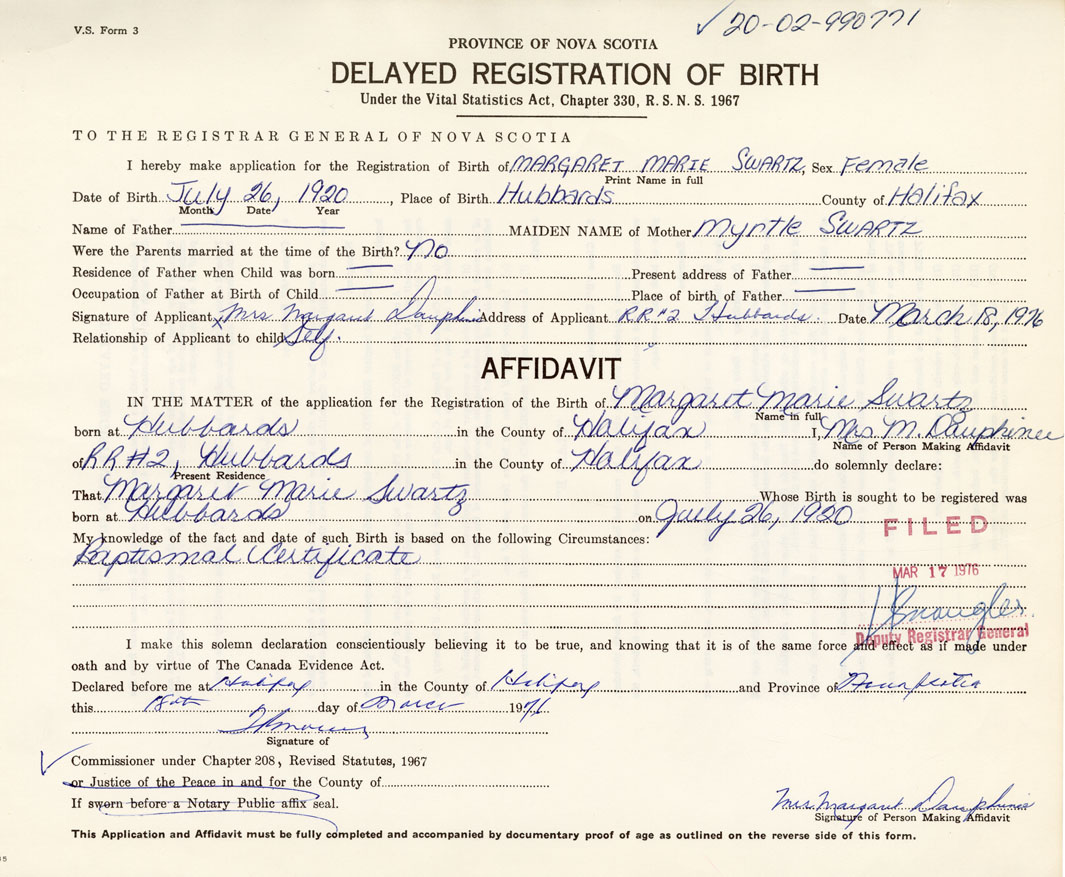 V.S. Form 3
✓20-02-990771
PROVINCE OF NOVA SCOTIA
DELAYED REGISTRATION OF BIRTH
Under the Vital Statistics Act, Chapter 330, R.S.N.S. 1967
TO THE REGISTRAR GENERAL OF NOVA SCOTIA
I hereby make application for the Registration of Birth of MARGARET MARIE SWARTZ, Sex Female
Print Name in full
Date of Birth July 26, 1920, Place of Birth Hubbards County of Halifax
Month Date Year
Name of Father MAIDEN NAME of Mother Myrtle SWARTZ
Were the Parents married at the time of the Birth? NO
Residence of Father when Child was born Present address of Father
Occupation of Father at Birth of Child Place of birth of Father
Signature of Applicant x Mrs Margaret Dauphinee Address of Applicant RR#2 Hubbards. Date March 18, 1976
Relationship of Applicant to child Self.
AFFIDAVIT
IN THE MATTER of the application for the Registration of the Birth of Margaret Marie Swartz
Name in full
born at Hubbards in the County of Halifax I, Mrs M. Dauphinee
Name of Person Making Affidavit
of RR#2, Hubbards in the County of Halifax do solemnly declare:
Present Residence
That Margaret Marie Swartz Whose Birth is sought to be registered was
born at Hubbards on July 26, 1920
FILED
My knowledge of the fact and date of such Birth is based on the following Circumstances:
Baptismal Certificate
MAR 17 1976
Deputy Registrar General
I make this solemn declaration conscientiously believing it to be true, and knowing that it is of the same force and effect as if made under
oath and by virtue of The Canada Evidence Act.
Declared before me at Halifax in the County of Halifax and Province of Nova Scotia
this 18th day of March 1976
Signature of
✓ Commissioner under Chapter 208, Revised Statutes, 1967
or Justice of the Peace in and for the County of
If sworn before a Notary Public affix seal.
Mrs. Margaret Dauphinee
Signature of Person Making Affidavit
This Application and Affidavit must be fully completed and accompanied by documentary proof of age as outlined on the reverse side of this form.